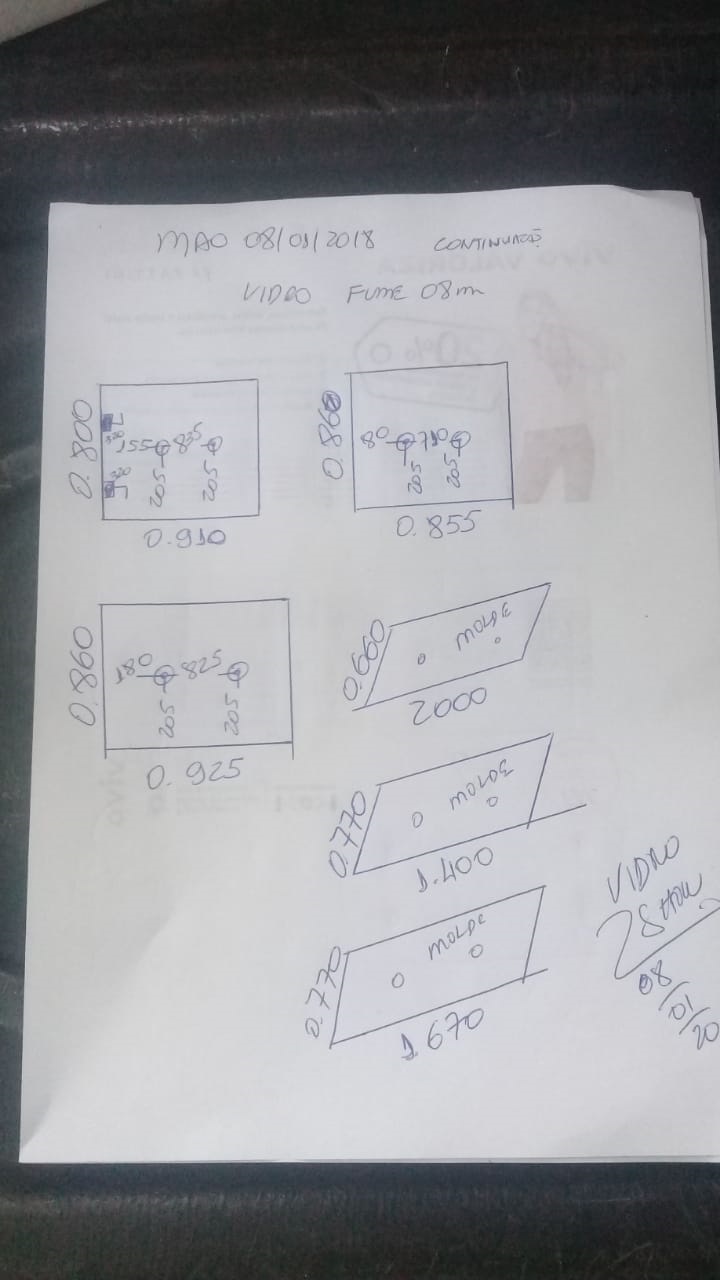 MAO 08/01/2018 CONTINUAÇÃO
VIDRO FUME 08m
0.800
320
155 835
320
205 205
0.910
0.860
80 710
205 205
0.855
0.860
180 825
205 205
0.925
0.660
MOLDE
2000
0.770
MOLDE
1.400
0.770
MOLDE
1.670
VIDRO
08/01/20
VIVO VALORIZA
20%
vivo